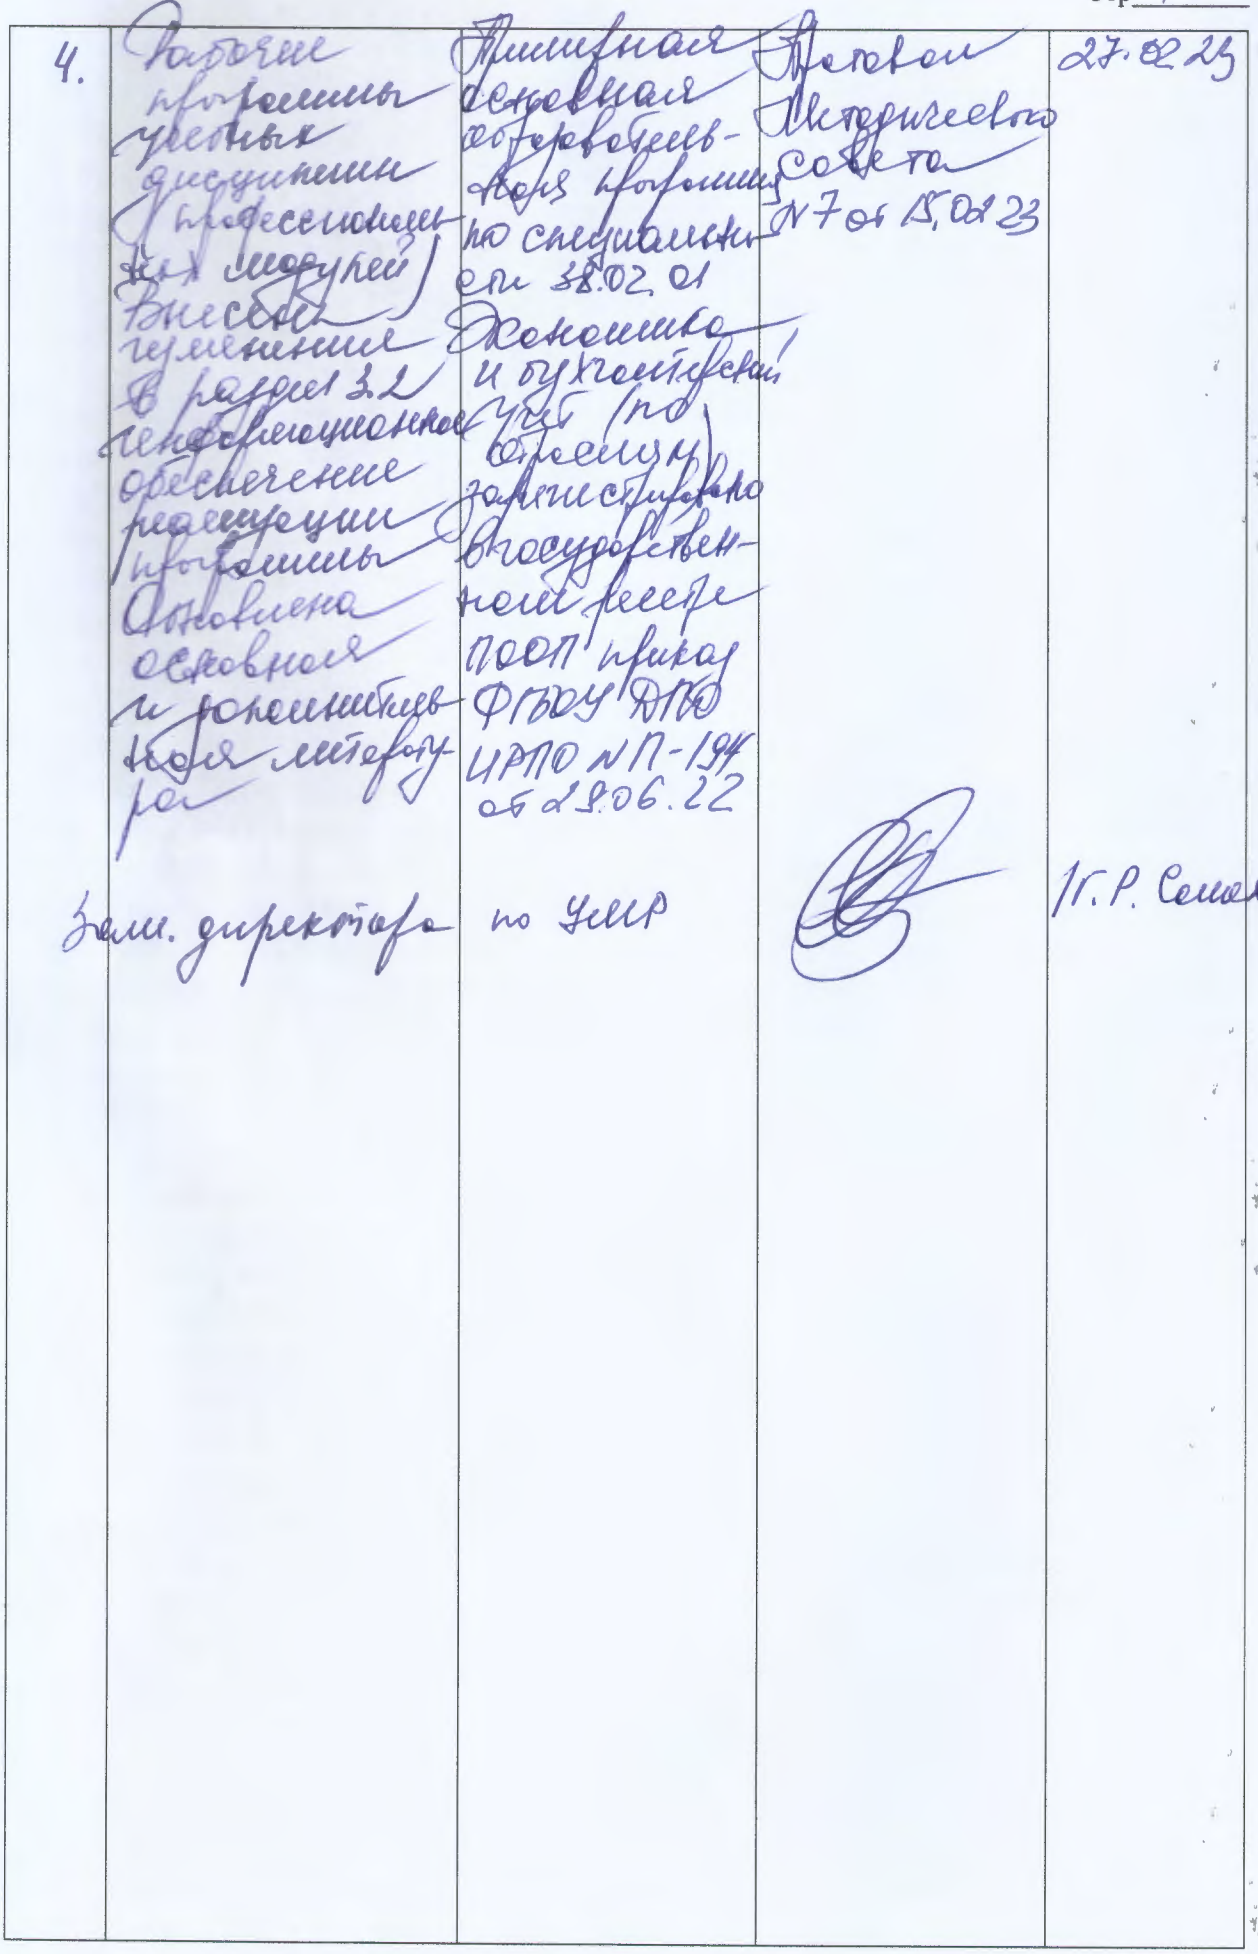 4.
Рабочие
программы
учебных
дисциплин
(профессиональ
ных модулей)
Внесены
изменения
в раздел 3.2
информационное
обеспечение
реализации
программы
Обновлена
основная
и дополнитель
ная литерату-
ра
Примерная
основная
образователь-
ная программа
по специально
сти 38.02.01
Экономика
и бухгалтерский
учет (по
отраслям)
зарегистрировано
в государствен-
ном реестре
ПООП приказ
ФГБОУ ДПО
ИРПО № П-194
от 29.06.22
Протокол
Методического
Совета
№7 от 15.02 23
27.02 23
Зам. директора по УМР
/Г.Р.